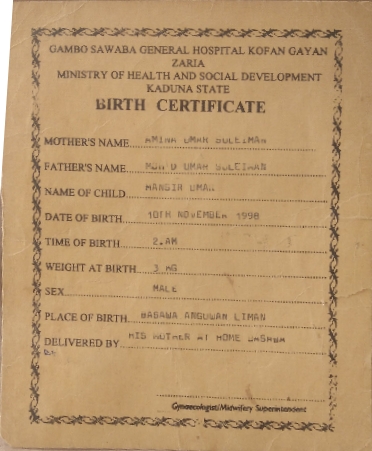 GAMBO SAWABA GENERAL HOSPITAL KOFAN GAYAN
ZARIA
MINISTRY OF HEALTH AND SOCIAL DEVELOPMENT
KADUNA STATE
BIRTH CERTIFICATE
MOTHER'S NAME AMINA UMAR SULEIMAN
FATHER'S NAME UMAR SULEIMAN
NAME OF CHILD UMAR
DATE OF BIRTH 10TH NOVEMBER 1998
TIME OF BIRTH 2.AM
WEIGHT AT BIRTH 3 KG
SEX MALE
PLACE OF BIRTH BASAWA ANGUWAN LIMAN
DELIVERED BY HIS MOTHER AT HOME
Gynaecologist/Midwifery Superintendent